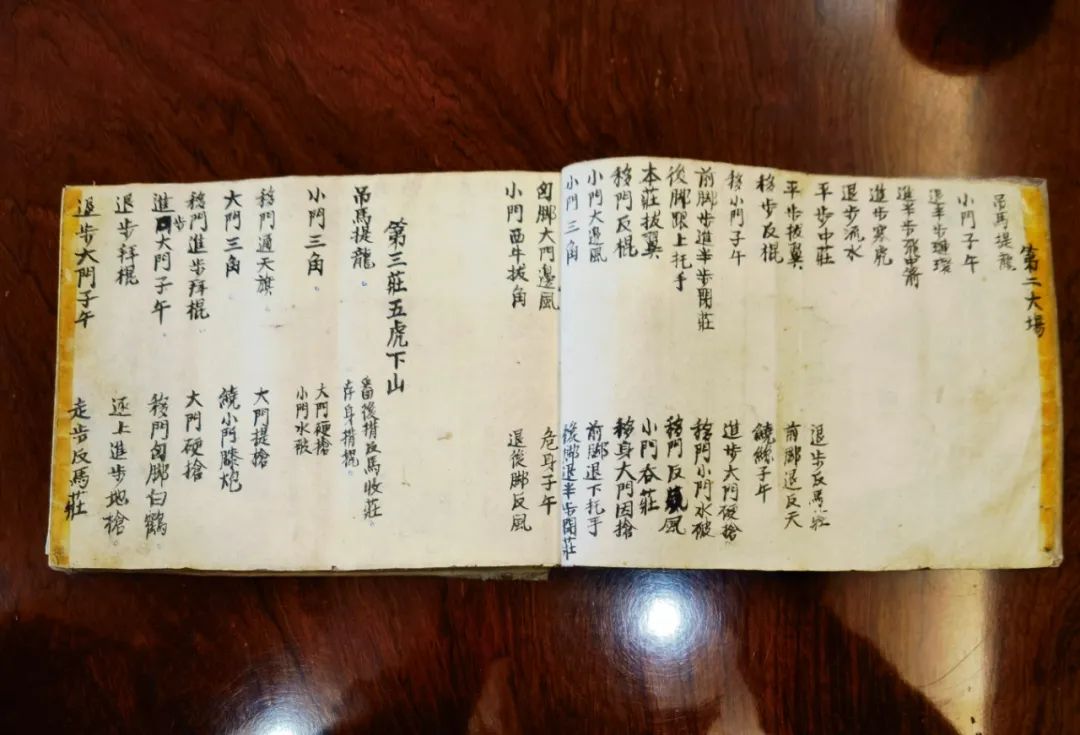 第二大場
吊馬提龍
小門子午
退半步連環
進半步飛中箭
進步寒虎
退步流水
平步中莊
平步拔翼
移步反棍
移小門子午
前脚步進半步閉莊
後脚跟上托手
本莊拔翼
移門反棍
小門大邊風
小門三角
退步反馬莊
前脚退反天
饒絲子午
進步大門硬搶
移門小門水破
移門反風
小門吞莊
移身大門因搶
前脚退下托手
後脚退半步閉莊
匈脚大門邊風
小門西牛拔角
危身子午
退後脚反風
第三莊五虎下山
吊馬提龍
小門三角
移門通天旗
大門三角
移門進步拜棍
進步大門子午
退步拜棍
退步大門子午
番後措反馬收莊
存身措棍
大門硬搶
小門水破
大門提搶
饒小門膝炮
大門硬搶
移門匈脚白鶴
逐上進步地搶
走步反馬莊